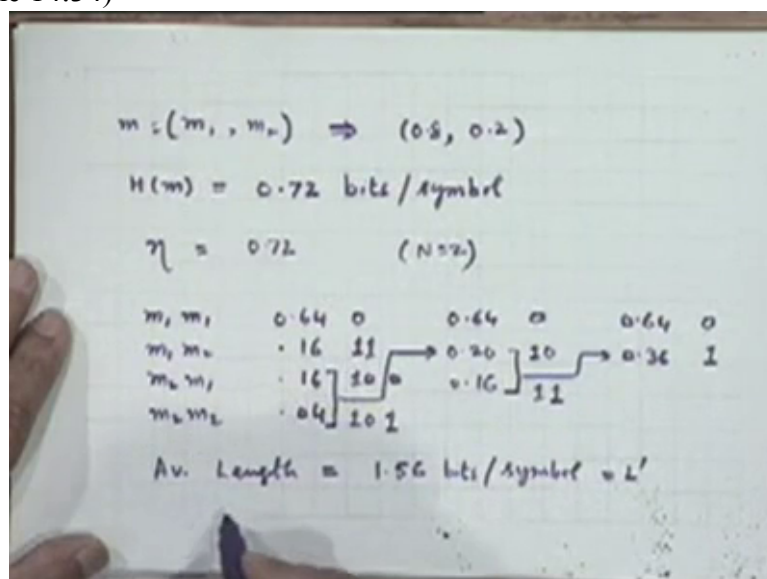 m : (m₁ , m₂) ⇒ (0.8, 0.2)
H(m) = 0.72 bits/symbol
η = 0.72 (N=2)
m₁ m₁ 0.64 0 0.64 0 0.64 0
m₁ m₂ .16 11 0.20 10 0.36 1
m₂ m₁ .16 100 0.16 11
m₂ m₂ .04 101
Av. Length = 1.56 bits/symbol = L'